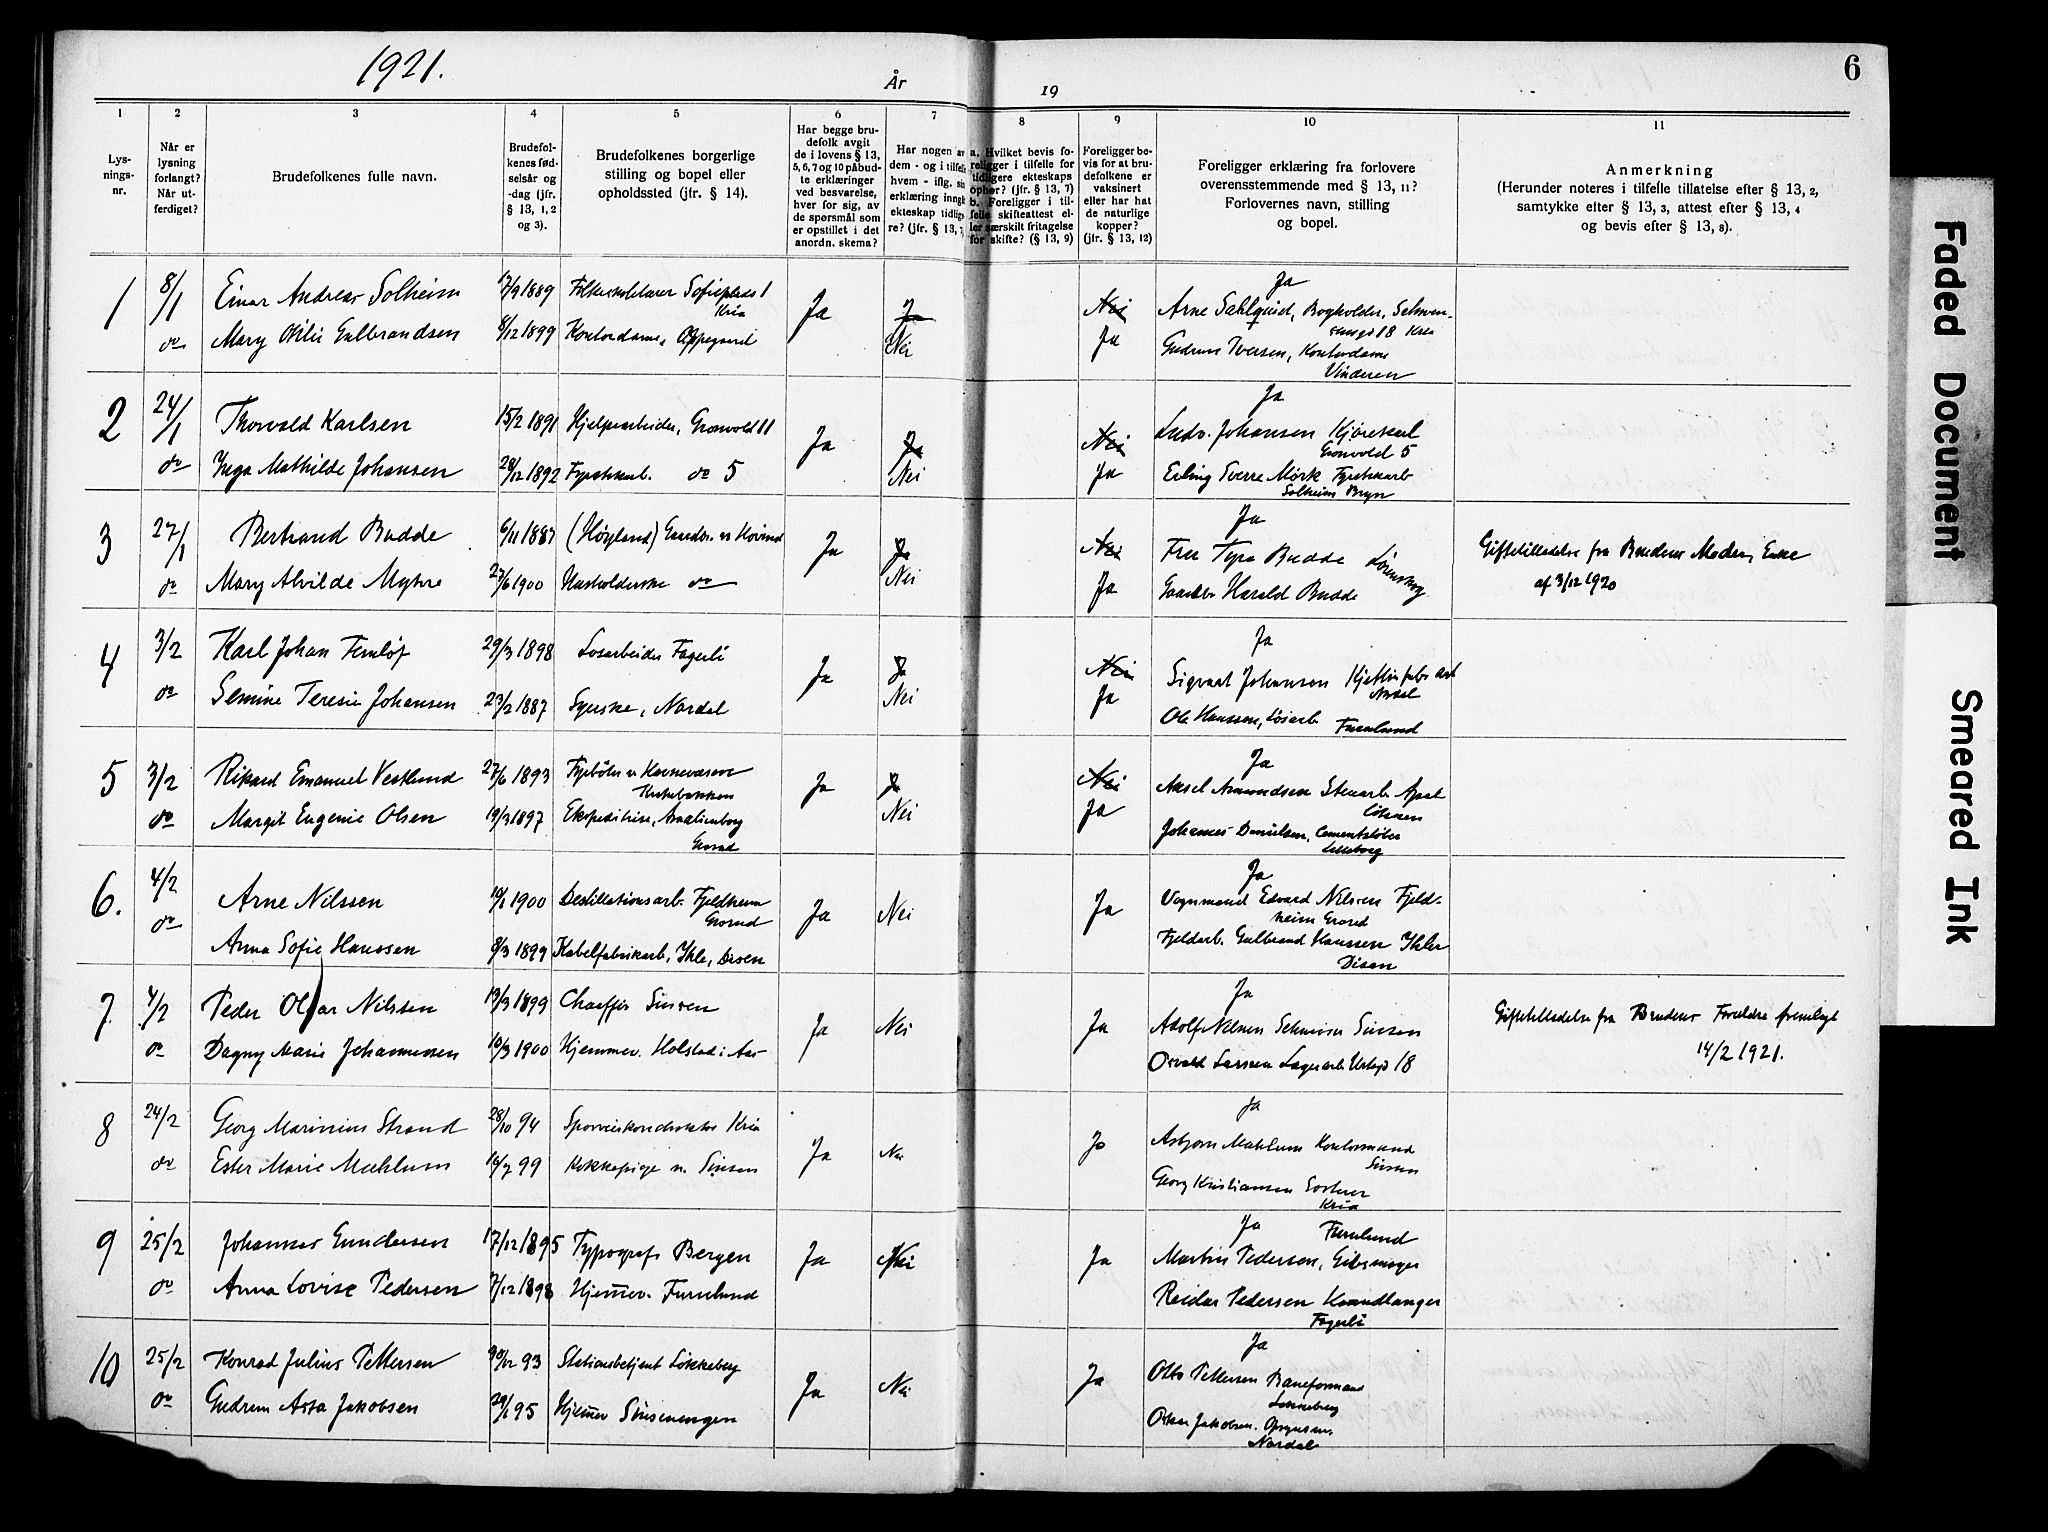 1921.
År
19
6
1
2
3
4
5
6
7
8
9
10
11
Lys-
nings-
nr.
Når er
lysning
forlangt?
Når ut-
ferdiget?
Brudefolkenes fulle navn.
Brudefol-
kenes fød-
selsår og
-dag (jfr.
§ 13, 1, 2
og 3).
Brudefolkenes borgerlige
stilling og bopel eller
opholdssted (jfr. § 14).
Har begge bru-
defolk avgit
de i lovens § 13,
5, 6, 7 og 10 påbud-
te erklæringer
ved besvarelse,
hver for sig, av
de spørsmål som
er opstillet i det
anordn. skema?
Har nogen av
dem - og i tilfelle
hvem - iflg. sin
erklæring inngå
ekteskap tidlig
re? (jfr. § 13, 7
a. Hvilket bevis fo-
religger i tilfelle for
tidligere ekteskaps
ophør? (jfr. § 13, 7)
b. Foreligger i til-
felle skifteattest el-
ler særskilt fritagelse
for skifte? (§ 13, 9)
Foreligger be-
vis for at bru-
defolkene er
vaksinert
eller har hat
de naturlige
kopper?
(jfr. § 13, 12)
Foreligger erklæring fra forlovere
overensstemmende med § 13, 11?
Forlovernes navn, stilling
og bopel.
Anmerkning
(Herunder noteres i tilfelle tillatelse efter § 13, 2,
samtykke efter § 13, 3, attest efter § 13, 4
og bevis efter § 13, 8).
1 8/1 Einar Andreas Solheim 17/9 1889 Folkeskolelærer Sofieplads 1
Kria
Ja Ja Nei Ja
Arne Sahlquist, Bogholder,
18 Kria
do Mary Otilie Gulbrandsen 8/12 1899 Kontordame, Oppegaard
Nei Ja
Gudrun Iversen, Kontordame
Vinderen
2 24/1 Thorvald Karlsen 15/2 1891 Hjelpearbeider, Grønvold 11
Ja Ja Nei Ja
Ludv. Johansen Kjørekarl
Grønvold 5
do Inga Mathilde Johansen 28/12 1892 Fyrstikkarb. do 5
Nei Ja
Erling Sverre Mørk Fyrstikkarb
Solheim Bryn
3 27/1 Bertrand Budde 6/11 1887 (Høyland) Gaardbr. v Hovind
Ja Ja Nei Ja
Fru Tyra Budde Lørenskog
do Mary Alvilde Myhre 27/6 1900 Husholderske do
Nei Ja
Gaardbr Harald Budde
Giftetilladelse fra Brudens Moder, Enke
af 3/12 1920
4 3/2 Karl Johan Femløf 29/3 1898 Løsarbeider Fagerli
Ja Ja Nei Ja
Sigvart Johansen Kjettingfabr arb
Nordal
do Semine Teresie Johansen 23/2 1887 Syerske, Nordal
Nei Ja
Ole Hanssen, Løsarb.
Furulund
5 3/2 Rikard Emanuel Vestlund 27/6 1893 Fyrbøter v Havnevæsene
Kirkebakken
Ja Ja Nei Ja
Aksel Amundsen Stenarb. Apal
Løkken
do Margit Eugenie Olsen 19/3 1897 Ekspeditrise, Amalienborg
Grorud
Nei Ja
Johannes Danielsen, Cementstøber
Lilleborg
6. 4/2 Arne Nilssen 10/1 1900 Destillationsarb. Fjeldheim
Grorud
Ja Nei Ja Ja
Vognmand Edvard Nilsen Fjeld-
heim Grorud
do Anna Sofie Hanssen 8/3 1899 Kabelfabrikarb, Ihle, Disen
Fjeldarb. Gulbrand Hanssen Ihler
Disen
7. 4/2 Peder Olfar Nilssen 13/3 1899 Chauffør Sinsen
Ja Nei Ja Ja
Adolf Nilsen Sinsen
do Dagny Marie Johannessen 10/3 1900 Hjemmev. Holstad i Aas
Osvald Larssen Lagerarb Urtegd 18
Giftetilladelse fra Brudens Forældre fremlagt
14/2 1921.
8 24/2 Georg Marinius Strand 28/10 94 Sporveiskonduktør Kria
Ja Nei Ja Ja
Asbjørn Mæhlum Kontormand
Sinsen
do Ester Marie Mæhlum 16/7 99 Kokkepige n. Sinsen
Georg Kristiansen
Kria
9 25/2 Johannes Gundersen 17/12 1895 Typograf Bergen
Ja Nei Ja Ja
Furulund
Martin Pedersen, Gibsmager
do Anna Lovise Pedersen 7/12 1898 Hjemmev. Furulund
Reidar Pedersen Haandlanger
Fagerli
10 25/2 Konrad Julius Pettersen 30/12 93 Stationsbetjent Løkkeberg
Ja Nei Ja Ja
Otto Pettersen Baneformand
Løkkeberg
do Gudrun Asta Jakobsen 29/1 95 Hjemmev Sinsenengen
Oskar Jakobsen.
Nordal
Faded Document
Smeared Ink